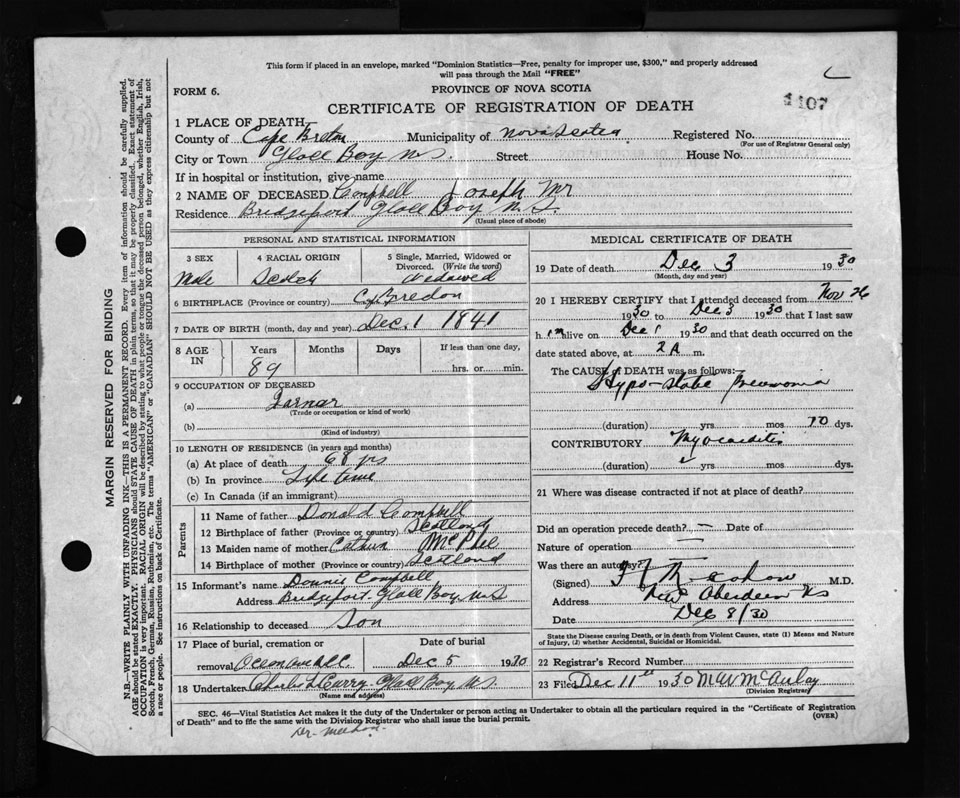 This form if placed in an envelope, marked "Dominion Statistics—Free, penalty for improper use, $300," and properly addressed
will pass through the Mail "FREE"
FORM 6.
PROVINCE OF NOVA SCOTIA
CERTIFICATE OF REGISTRATION OF DEATH
1107
1 PLACE OF DEATH
County of Cape Breton Municipality of Nova Scotia Registered No.
(For use of Registrar General only)
City or Town Glace Bay N.S. Street House No.
If in hospital or institution, give name
2 NAME OF DECEASED Campbell Joseph Mr
Residence Bridgeport Glace Bay N.S.
(Usual place of abode)
PERSONAL AND STATISTICAL INFORMATION
3 SEX
Male
4 RACIAL ORIGIN
Scotch
5 Single, Married, Widowed or
Divorced. (Write the word)
Widowed
6 BIRTHPLACE (Province or country) C. Bredon
7 DATE OF BIRTH (month, day and year) Dec. 1 1841
8 AGE IN
Years Months Days If less than one day,
89 hrs. or min.
9 OCCUPATION OF DECEASED
(a) Farmar
(Trade or occupation or kind of work)
(b)
(Kind of industry)
10 LENGTH OF RESIDENCE (in years and months)
(a) At place of death 68 yrs
(b) In province Life time
(c) In Canada (if an immigrant)
Parents
11 Name of father Donald Campbell
12 Birthplace of father (Province or country) Scotland
13 Maiden name of mother McPhel
14 Birthplace of mother (Province or country) Scotland
15 Informant's name Donnie Campbell
Address Bridgeport Glace Bay N.S
16 Relationship to deceased Son
17 Place of burial, cremation or
removal
Date of burial
Dec 5 1930
18 Undertaker Curry Glace Bay N.S.
(Name and address)
MEDICAL CERTIFICATE OF DEATH
19 Date of death Dec 3 1930
(Month, day and year)
20 I HEREBY CERTIFY that I attended deceased from Nov 26
1930 to Dec 3 1930 that I last saw
h im alive on Dec 1 1930 and that death occurred on the
date stated above, at 2 A m.
The CAUSE of DEATH was as follows:—
Hypo-static Pneumonia
(duration) yrs mos 10 dys.
CONTRIBUTORY Myocarditis
(duration) yrs mos dys.
21 Where was disease contracted if not at place of death?
Did an operation precede death? — Date of
Nature of operation —
Was there an autopsy?
(Signed) M.D.
Address New Aberdeen NS
Date Dec 8/30
State the Disease causing Death, or in death from Violent Causes, state (1) Means and Nature
of Injury, (2) whether Accidental, Suicidal or Homicidal.
22 Registrar's Record Number
23 Filed Dec 11th 1930 McAulay
(Division Registrar)
SEC. 46—Vital Statistics Act makes it the duty of the Undertaker or person acting as Undertaker to obtain all the particulars required in the "Certificate of Registration
of Death" and to file the same with the Division Registrar who shall issue the burial permit.
(OVER)
MARGIN RESERVED FOR BINDING
N.B.—WRITE PLAINLY WITH UNFADING INK—THIS IS A PERMANENT RECORD. Every item of information should be carefully supplied.
AGE should be stated EXACTLY. PHYSICIANS should STATE CAUSE OF DEATH in plain terms, so that it may be properly classified. Exact statement of
OCCUPATION is very important. RACIAL ORIGIN will be described by stating to what people or tongue the deceased person belonged, whether English, Irish,
Scotch, French, German, Russian, Ruthenian, etc. The terms "AMERICAN" or "CANADIAN" SHOULD NOT BE USED as they express citizenship but not
a race or people. See instructions on back of Certificate.